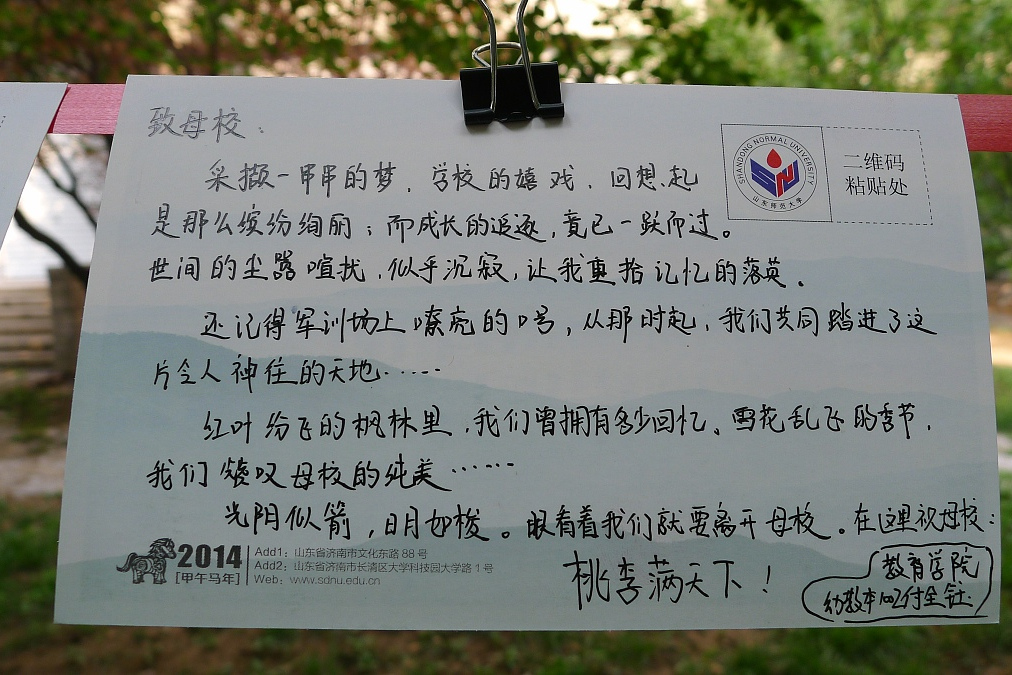 致母校：
SHANDONG NORMAL UNIVERSITY
山东师范大学
二维码
粘贴处
采撷一串串的梦，学校的嬉戏，回想起
是那么缤纷绚丽；而成长的追逐，竟已一跃而过。
世间的尘嚣喧扰，似乎沉寂，让我重拾记忆的落英。
还记得军训场上嘹亮的口号，从那时起，我们共同踏进了这
片令人神往的天地……
红叶纷飞的枫林里，我们曾拥有多少回忆。雪花乱飞的季节，
我们赞叹母校的纯美……
光阴似箭，日月如梭。眼看着我们就要离开母校。在这里祝母校：
桃李满天下！
教育学院
幼教本1002付全钰
2014
[甲午马年]
Add1：山东省济南市文化东路 88 号
Add2：山东省济南市长清区大学科技园大学路 1 号
Web：www.sdnu.edu.cn